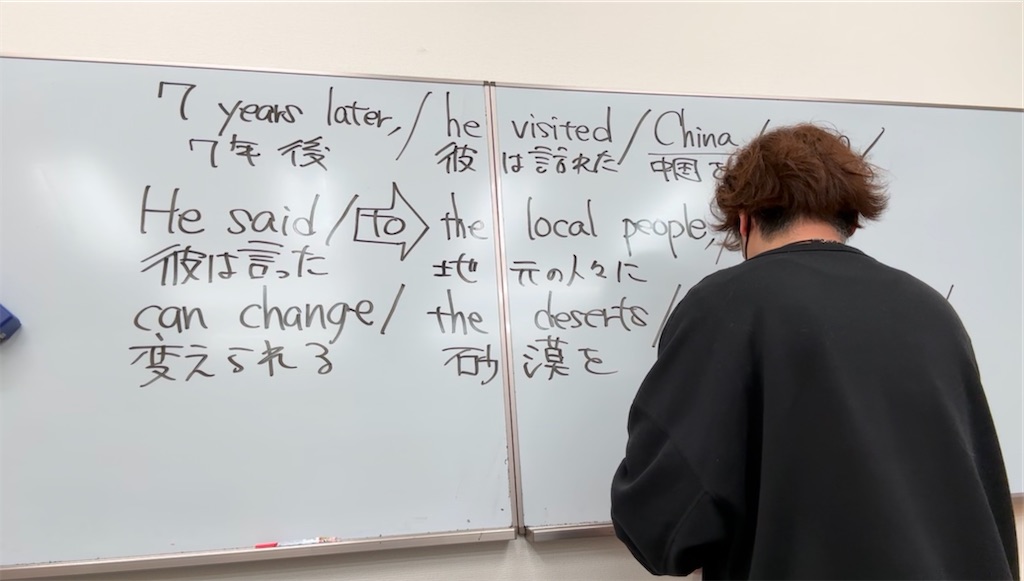 7 years later, / he visited / China /
7年後 彼は訪れた 中国
He said / to the local people,
彼は言った 地元の人々に
can change / the deserts /
変えられる 砂漠を